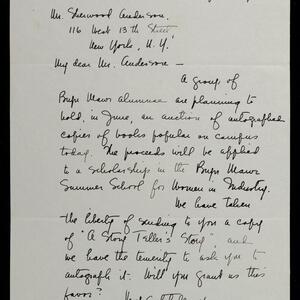 Mr. Sherwood Anderson,
116 West 13th Street
New York, N.Y.
My dear Mr. Anderson —
A group of
Bryn Mawr alumnae are planning to
hold, in June, an auction of autographed
copies of books popular on campus
today. The proceeds will be applied
to a scholarship in the Bryn Mawr
Summer School for Women in Industry.
We have taken
the liberty of sending to you a copy
of "A Story Teller's Story", and
we have the temerity to ask you to
autograph it. Will you grant us this
favor?